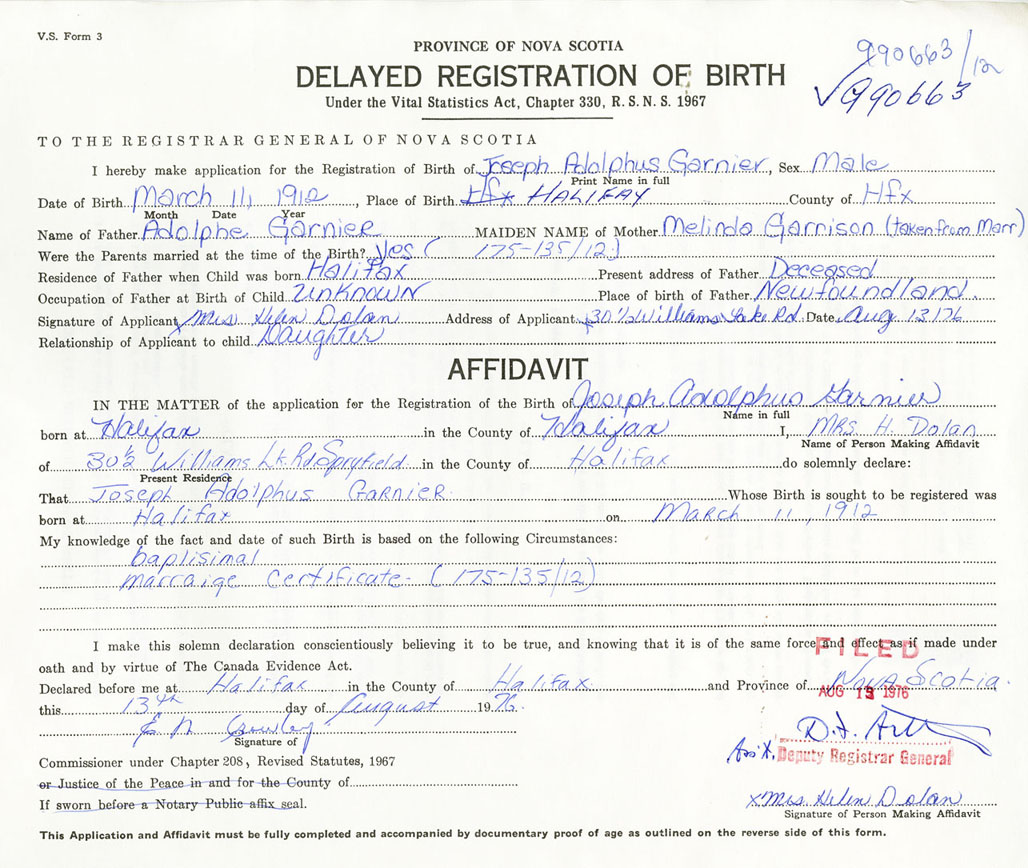 V.S. Form 3
990663/12
PROVINCE OF NOVA SCOTIA
DELAYED REGISTRATION OF BIRTH
√990663
Under the Vital Statistics Act, Chapter 330, R.S.N.S. 1967
TO THE REGISTRAR GENERAL OF NOVA SCOTIA
I hereby make application for the Registration of Birth of Joseph Adolphus Garnier, Sex Male
Print Name in full
Date of Birth March 11, 1912, Place of Birth Hfx HALIFAX County of Hfx
Month Date Year
Name of Father Adolphe Garnier MAIDEN NAME of Mother Melinda Garrison (taken from Marr)
Were the Parents married at the time of the Birth? Yes (175-135/12)
Residence of Father when Child was born Halifax Present address of Father Deceased
Occupation of Father at Birth of Child Unknown Place of birth of Father Newfoundland.
Signature of Applicant x Mrs Helen Dolan Address of Applicant x 30½ Williams Lake Rd. Date Aug 13 / 76
Relationship of Applicant to child Daughter
AFFIDAVIT
IN THE MATTER of the application for the Registration of the Birth of Joseph Adolphus Garnier
Name in full
born at Halifax in the County of Halifax I, MRS. H. Dolan
Name of Person Making Affidavit
of 30½ Williams Lk. Rd Spryfield in the County of Halifax do solemnly declare:
Present Residence
That Joseph Adolphus Garnier. Whose Birth is sought to be registered was
born at Halifax on March 11, 1912
My knowledge of the fact and date of such Birth is based on the following Circumstances:
baplisimal
marraige Certificate - (175-135/12)
I make this solemn declaration conscientiously believing it to be true, and knowing that it is of the same force and effect as if made under
FILED
oath and by virtue of The Canada Evidence Act.
Declared before me at Halifax in the County of Halifax and Province of Nova Scotia.
AUG 13 1976
this 13th day of August 1976.
E N Crowley
Signature of
D.F.
Ass't. Deputy Registrar General
Commissioner under Chapter 208, Revised Statutes, 1967
or Justice of the Peace in and for the County of
x Mrs. Helen Dolan
If sworn before a Notary Public affix seal.
Signature of Person Making Affidavit
This Application and Affidavit must be fully completed and accompanied by documentary proof of age as outlined on the reverse side of this form.